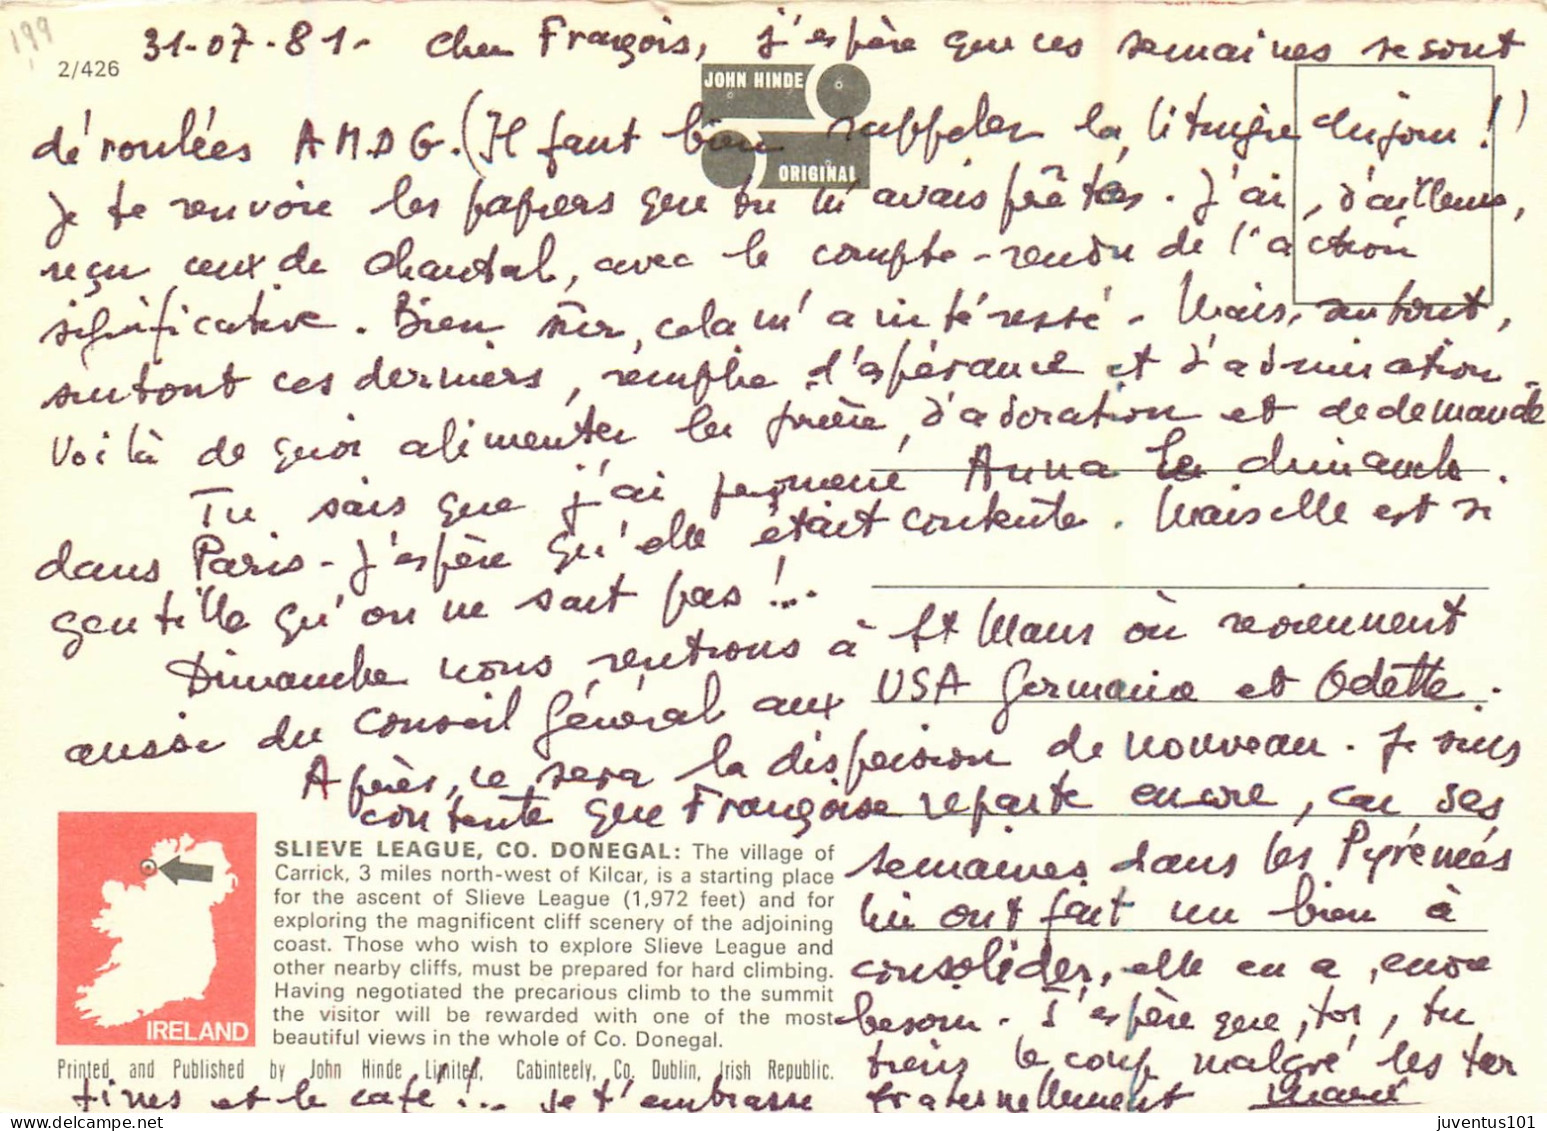 199
2/426
31-07-81- Cher François, J'espère que ces semaines se sont
JOHN HINDE
ORIGINAL
déroulées AMDG. (Il faut bien rappeler la liturgie du jour !)
Je te renvoie les papiers que tu m'avais prêtés. J'ai, d'ailleurs,
reçu ceux de Chantal, avec le compte-rendu de l'action
significative. Bien sûr, cela m'a intéressé. Mais, surtout,
surtout ces derniers, remplie d'espérance et d'admiration.
Voilà de quoi alimenter la prière, d'adoration et de demande
Tu sais que j'ai promené Anna le dimanche.
dans Paris - J'espère qu'elle était contente. Mais elle est si
gentille qu'on ne sait pas !...
Dimanche nous rentrons à St Maur où reviennent
aussi du Conseil Général aux USA Germaine et Odette.
Après, ce sera la dispersion de nouveau. Je suis
contente que Françoise reparte encore, car ses
semaines dans les Pyrénées
lui ont fait un bien à
consolider, elle en a encore
besoin. J'espère que, toi, tu
tiens le coup malgré les tar
tines et le café !... Je t'embrasse fraternellement
SLIEVE LEAGUE, CO. DONEGAL: The village of
Carrick, 3 miles north-west of Kilcar, is a starting place
for the ascent of Slieve League (1,972 feet) and for
exploring the magnificent cliff scenery of the adjoining
coast. Those who wish to explore Slieve League and
other nearby cliffs, must be prepared for hard climbing.
Having negotiated the precarious climb to the summit
the visitor will be rewarded with one of the most
beautiful views in the whole of Co. Donegal.
IRELAND
Printed and Published by John Hinde Limited, Cabinteely, Co. Dublin, Irish Republic.
juventus101